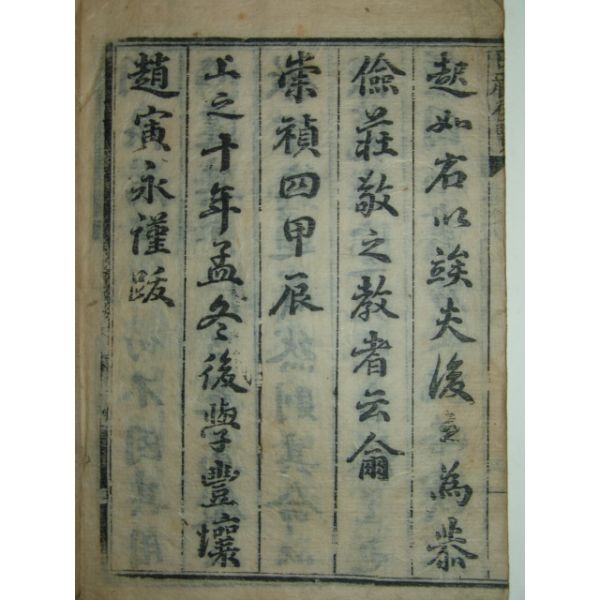 起如右以竢夫後之為恭
儉莊敬之教者云爾
崇禎四甲辰
上之十年孟冬後學豐壤
趙寅永謹跋